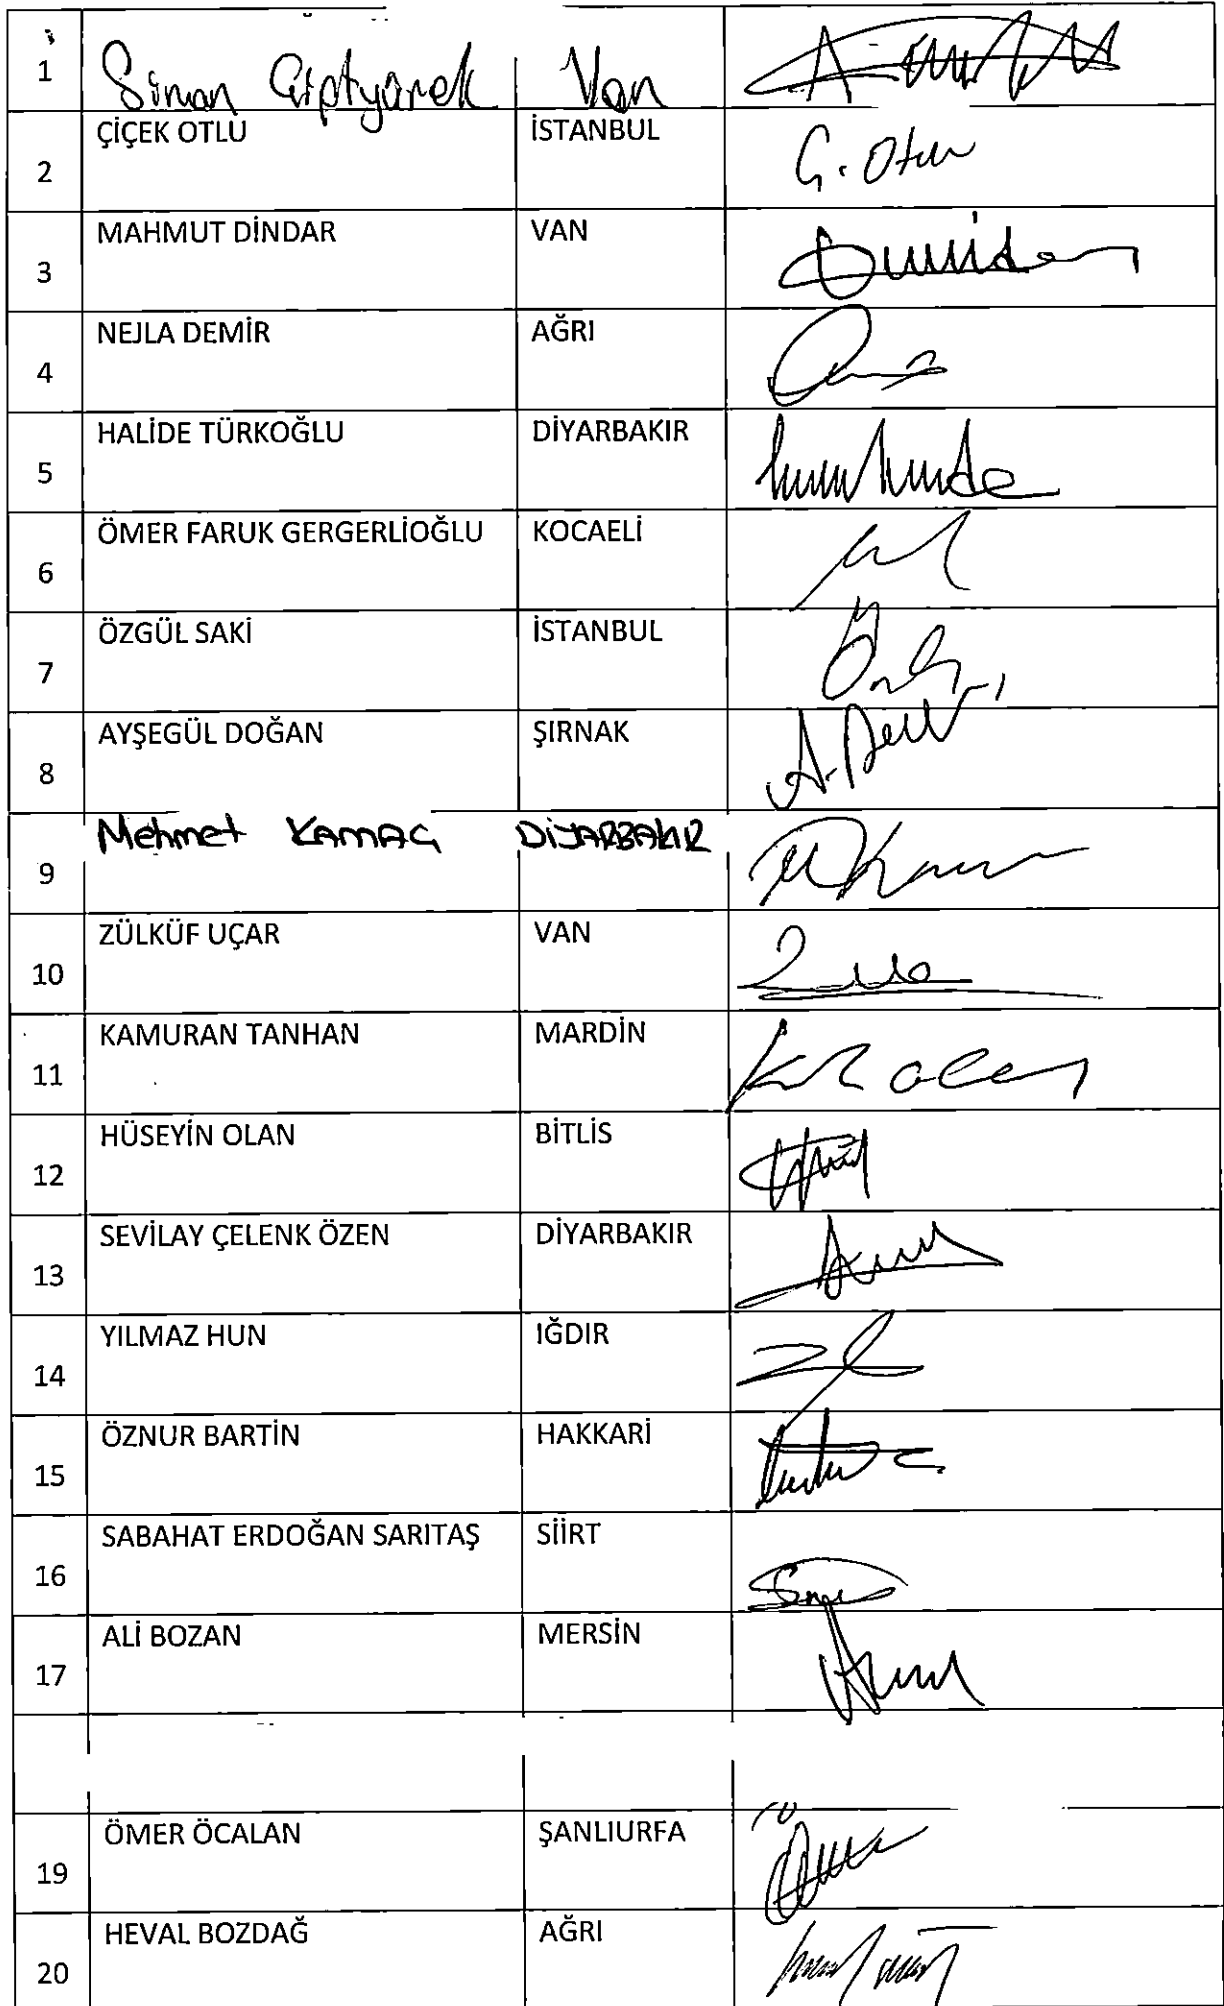 1 Sinan Çiftyürek Van
2 ÇİÇEK OTLU İSTANBUL Ç. Otlu
3 MAHMUT DİNDAR VAN
4 NEJLA DEMİR AĞRI
5 HALİDE TÜRKOĞLU DİYARBAKIR
6 ÖMER FARUK GERGERLİOĞLU KOCAELİ
7 ÖZGÜL SAKİ İSTANBUL
8 AYŞEGÜL DOĞAN ŞIRNAK
9 Mehmet KAMAÇ DİYARBAKIR
10 ZÜLKÜF UÇAR VAN
11 KAMURAN TANHAN MARDİN
12 HÜSEYİN OLAN BİTLİS
13 SEVİLAY ÇELENK ÖZEN DİYARBAKIR
14 YILMAZ HUN IĞDIR
15 ÖZNUR BARTİN HAKKARİ
16 SABAHAT ERDOĞAN SARITAŞ SİİRT
17 ALİ BOZAN MERSİN
19 ÖMER ÖCALAN ŞANLIURFA
20 HEVAL BOZDAĞ AĞRI